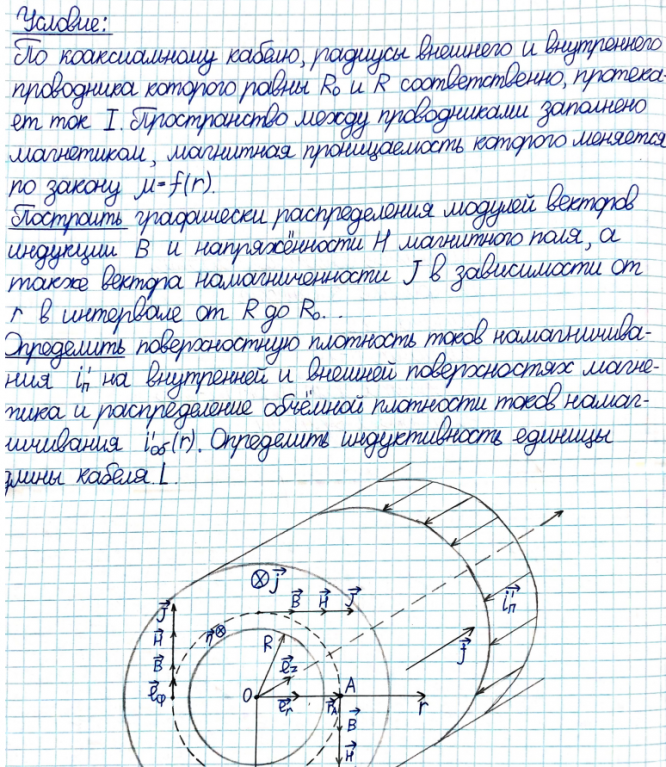 Условие:
По коаксиальному кабелю, радиусы внешнего и внутреннего
проводника которого равны R₀ и R соответственно, протека-
ет ток I. Пространство между проводниками заполнено
магнетиком, магнитная проницаемость которого меняется
по закону μ=f(r).
Построить графически распределения модулей векторов
индукции B и напряжённости H магнитного поля, а
также вектора намагниченности J в зависимости от
r в интервале от R до R₀.
Определить поверхностную плотность токов намагничива-
ния i'п на внутренней и внешней поверхностях магне-
тика и распределение объёмной плотности токов намаг-
ничивания i'об(r). Определить индуктивность единицы
длины кабеля L.
j
B H J
J
i'п
n
H
R
j
B
e_z
e_φ
O
A
e_r
r
B
H